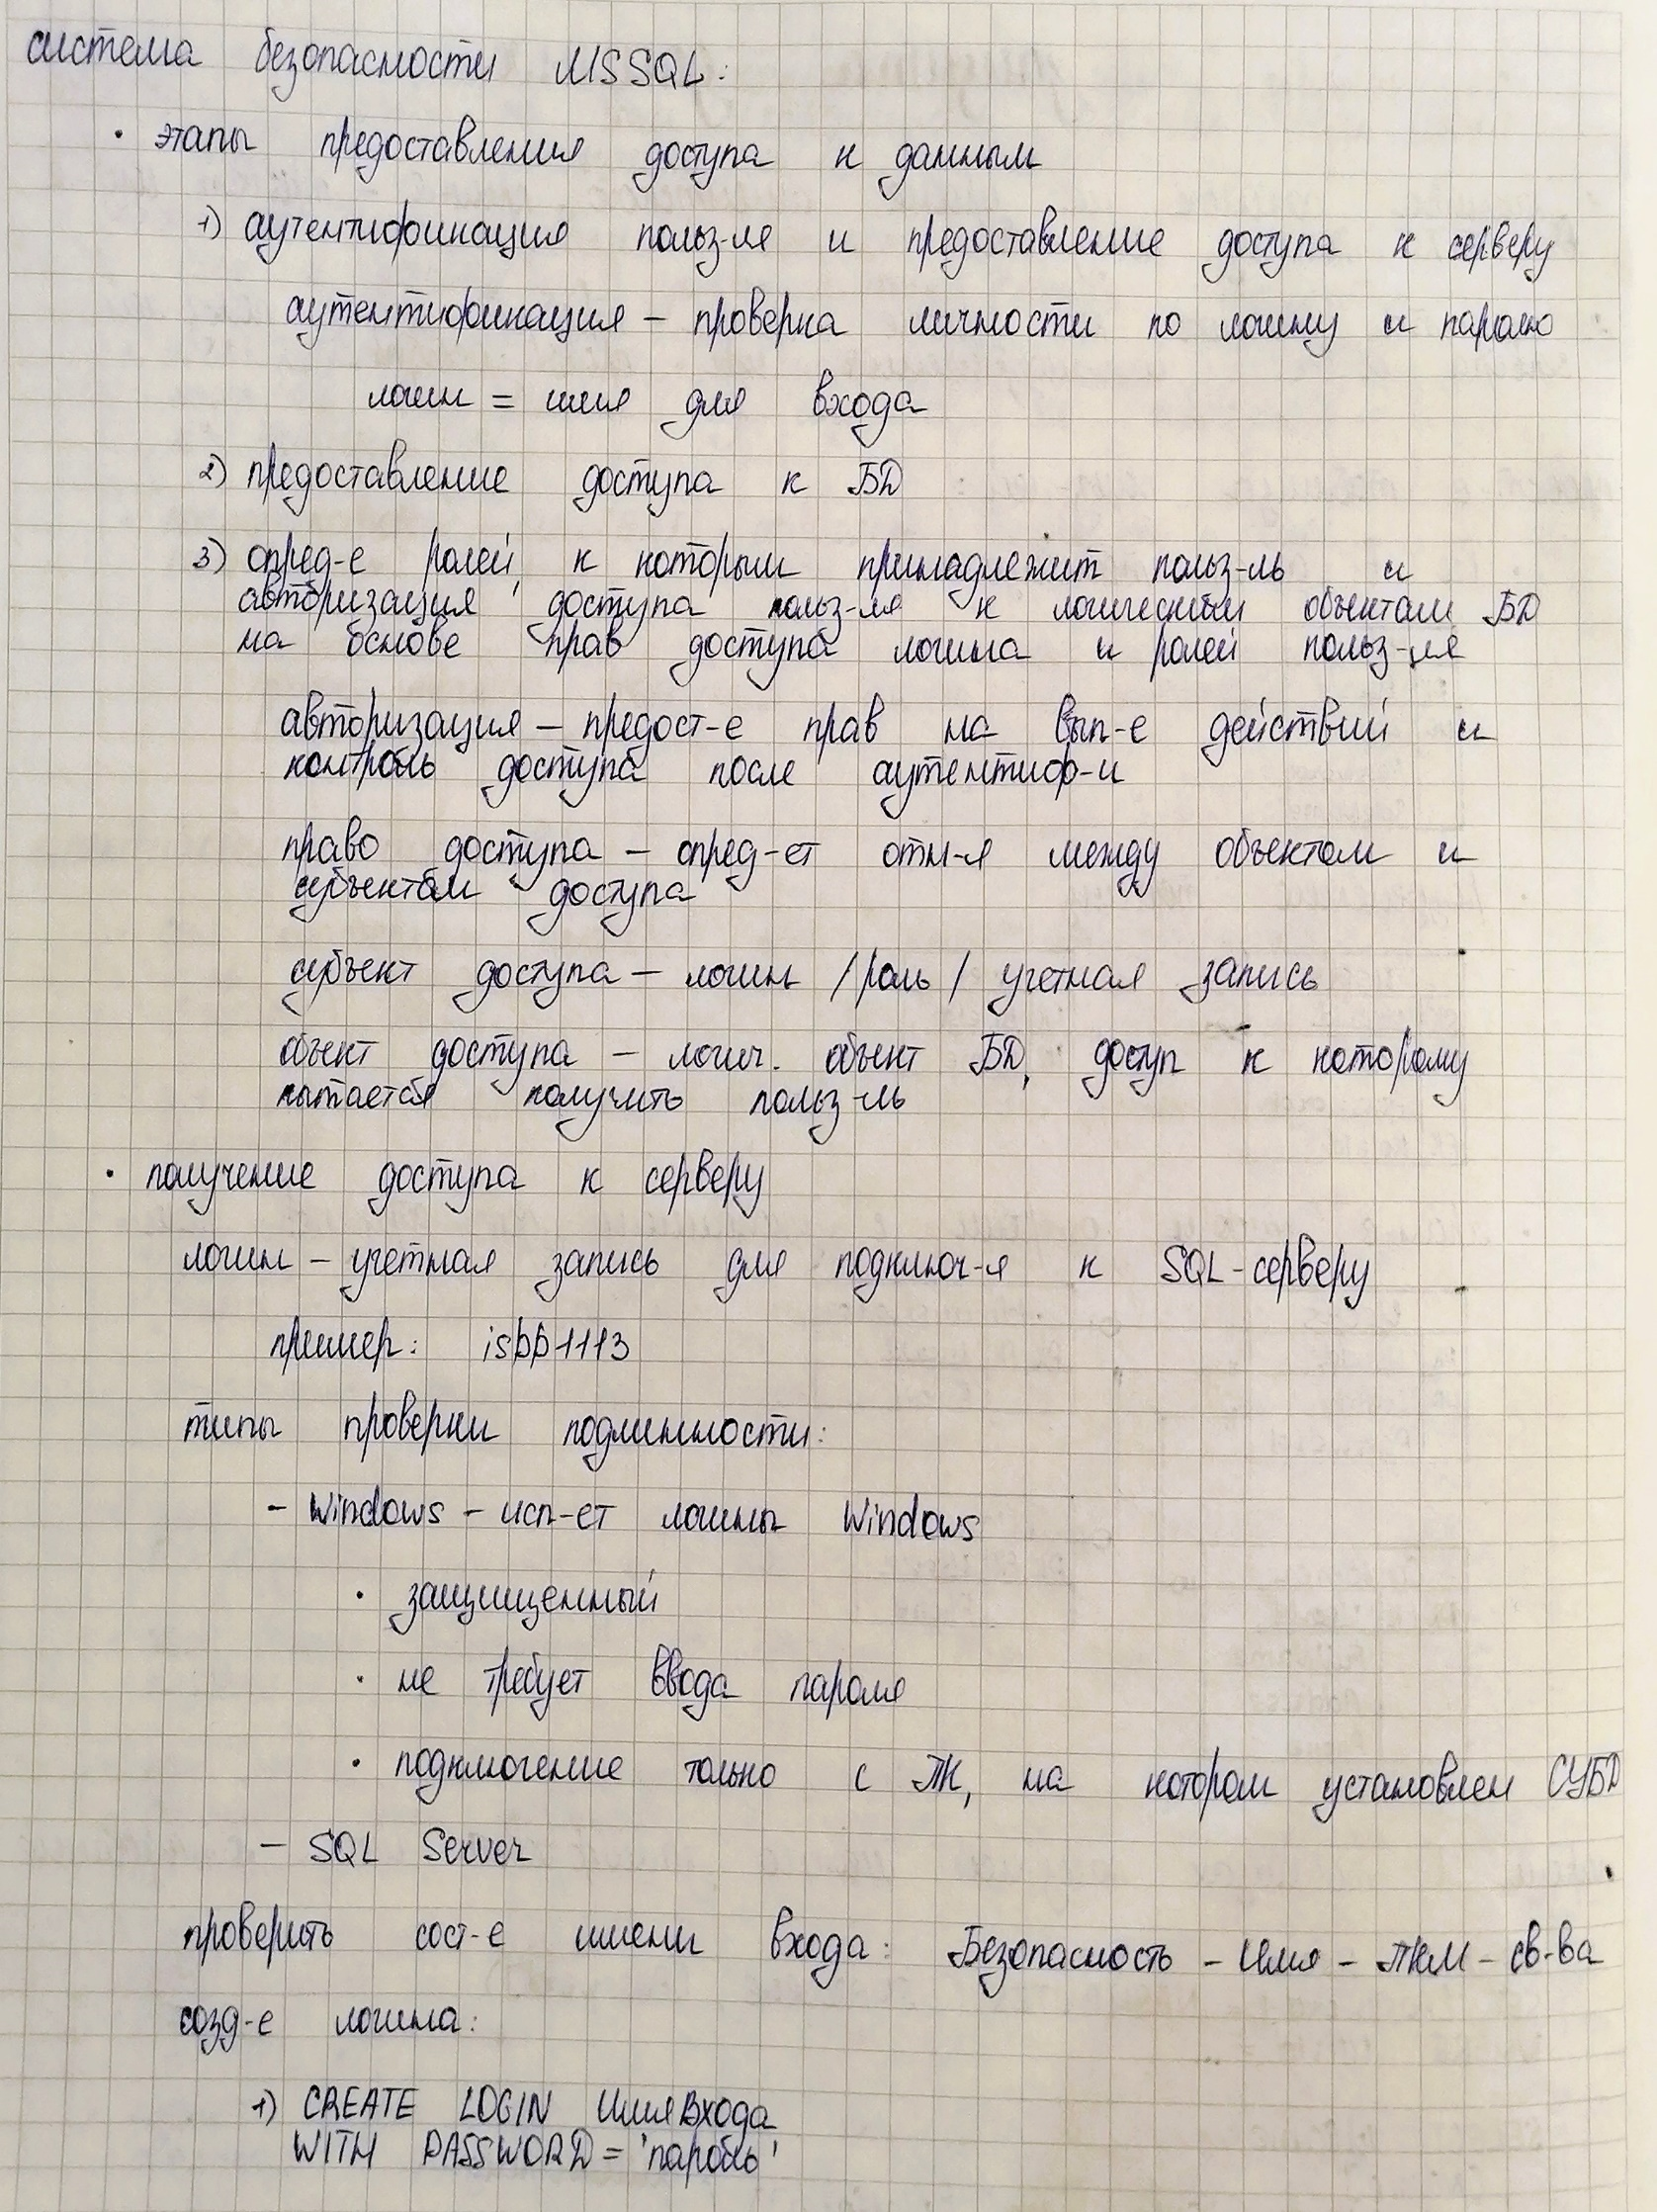 система безопасности MSSQL:
• этапы предоставления доступа к данным
1) аутентификация польз-ля и предоставление доступа к серверу
аутентификация – проверка личности по логину и паролю
логин = имя для входа
2) предоставление доступа к БД
3) опред-е ролей, к которым принадлежит польз-ль и
авторизация доступа польз-ля к логическим объектам БД
на основе прав доступа логина и ролей польз-ля
авторизация – предост-е прав на вып-е действий и
контроль доступа после аутентиф-и
право доступа – опред-ет отн-я между объектом и
субъектом доступа
субъект доступа – логин / роль / учетная запись
объект доступа – логич. объект БД, доступ к которому
пытается получить польз-ль
• получение доступа к серверу
логин – учетная запись для подключ-я к SQL-серверу
пример: ispp1113
типы проверки подлинности:
– Windows – исп-ет логины Windows
• защищенный
• не требует ввода пароля
• подключение только с ПК, на котором установлен СУБД
– SQL Server
проверить сост-е имени входа: Безопасность – Имя – ПКМ – св-ва
созд-е логина:
1) CREATE LOGIN ИмяВхода
WITH PASSWORD = 'пароль'